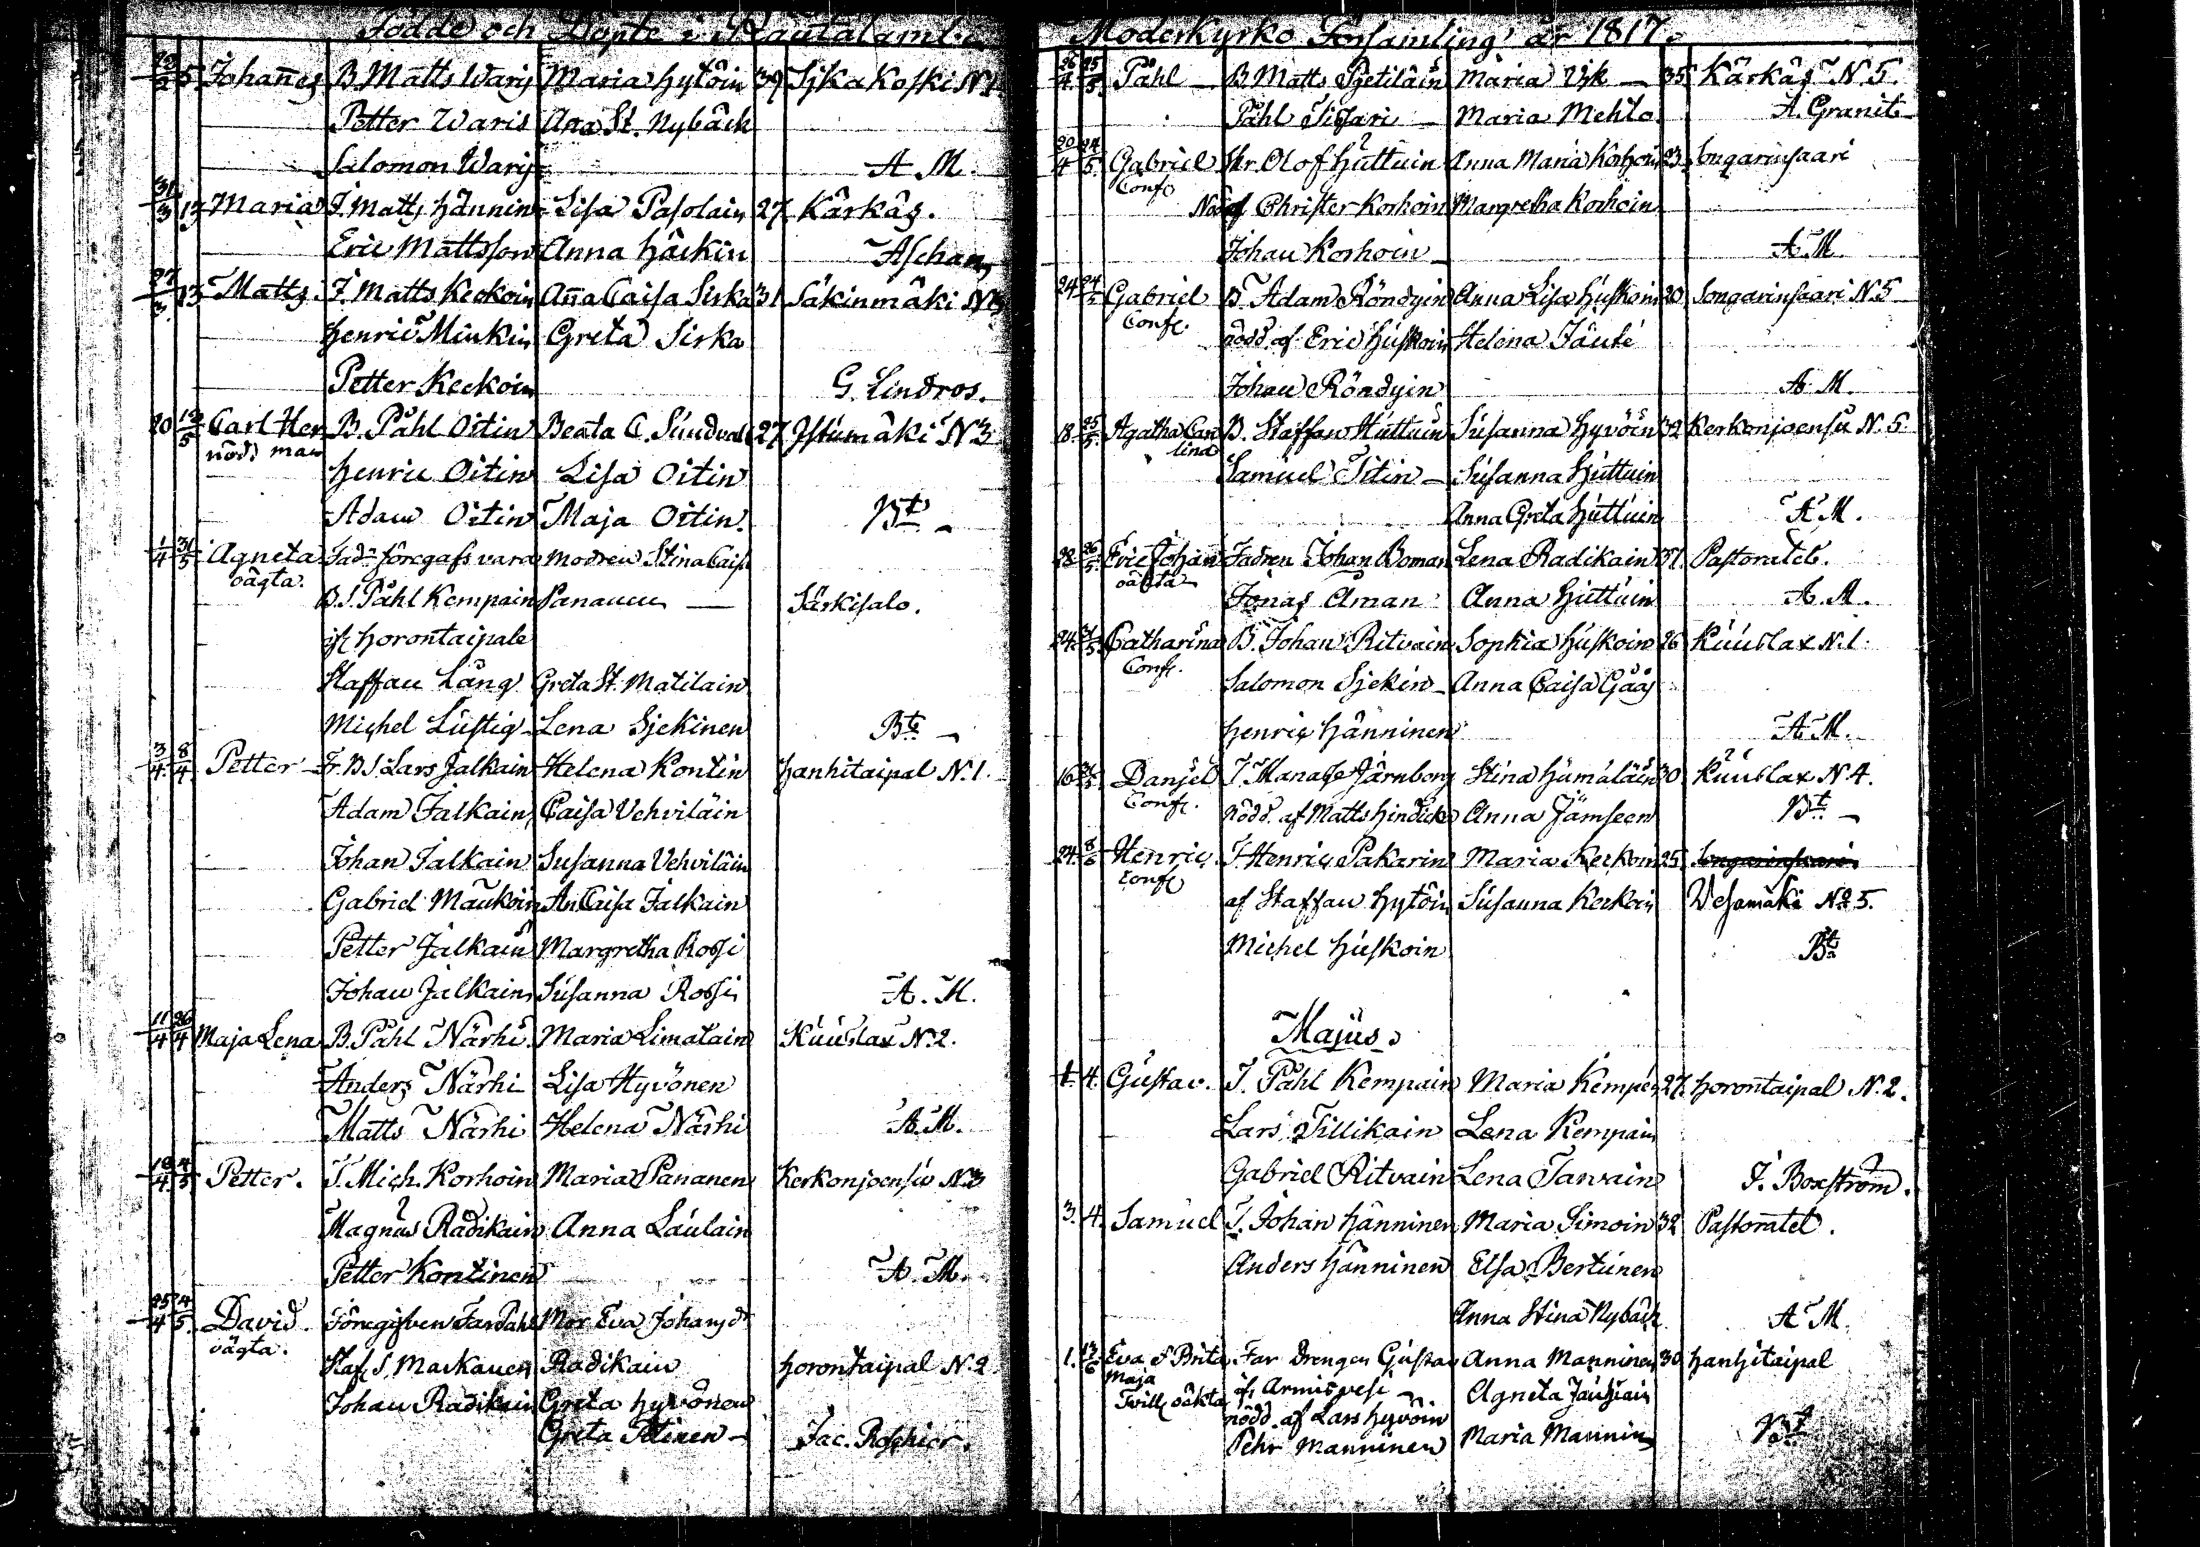 Födde och Döpte i Rautalambi
22/2 5 Johannes B. Matts Waris Maria Hytöin 39 Sjkakoski N 1
Petter Waris Anna St. Nybäck
Salomon Waris A M.
31/3 13 Maria T. Matts Hännin Lisa Pasolain 27 Kärkäs.
Eric Mattsson Anna Häckin Aschan
27/3 13 Matts T. Matts Keckoin Anna Caisa Sirka 31 Säkinmäki
Henric Minkin Greta Sirka
Petter Keckoin G. Lindros.
20 12/5 Carl Her B. Påhl Oitin Beata C. Sundvall 27 Istumäki N 3
nödd man
Henric Oitin Lisa Oitin
Adam Oitin Maja Oitin Bt
1/4 31/5 Agneta Fadn föregafs vara modren Stina Caisa
oägta. B.S. Påhl Kempain Pananen — Särkisalo.
ifr Horontaipale
Staffan Lång Greta St. Matilain
Michel Lustig Lena Sjekinen Bt
3/4 8/4 Petter Fr. B.S. Lars Jalkain Helena Kontin Hanhitaipal N. 1.
Adam Jalkain Caisa Vehviläin
Johan Jalkain Susanna Vehviläin
Gabriel Maukoin An Caisa Jalkain
Petter Jalkain Margretha Rossi
Johan Jalkain Susanna Rossi A. M.
11/4 26/4 Maja Lena B. Påhl Närhi Maria Limatain Kuuslax N. 2.
Anders Närhi Lisa Hyvönen
Matts Närhi Helena Närhi A. M.
4/5 Petter. T. Mich. Korhoin Maria Pananen Kerkonjoensu N. 3
Magnus Radikain Anna Laulain
Petter Kontinen A. M.
25/4 4/5 David Föregifven Far Påhl Mor Eva Johansdr
oägta. Staf. S. Markanen Radikain Horontaipal N. 2
Johan Radikain Greta Hyvönen
Greta Pitinen — Jac. Roschier.
Moderkyrko Församling år 1817.
26/4 25/5 Påhl — B. Matts Pjetiläin Maria Vjk — 35 Kärkäs N. 5.
Påhl Sissari — Maria Mehlo A. Granit
20/4 24/5 Gabriel Hr. Olof Huttuin Anna Maria Korhoin 23 Songarinsaari
Conf.
Nöd af Christer Korhoin Margretha Korhoin
Johan Korhoin A. M.
24 24/5 Gabriel B. Adam Röndyin Anna Lisa Huskoin 20 Songarinsaari N. 5
Conf. nödd. af Eric Huskoin Helena Jäute
Johan Röndyin A. M.
18 25/5 Agatha Carolina B. Staffan Huttuin Susanna Hyvöin 32 Kerkonjoensu N. 5.
Samuel Titin — Susanna Huttuin
Anna Greta Huttuin A. M.
28 26/5 Eric Johan Fadren Johan Boman Lena Radikain 31. Pastoratet.
oäkta Jonas Aman Anna Huttuin A. M.
24 Catharina B. Johan Ritvain Sophia Huskoin 26 Kuuslax N. 1.
Conf. Salomon Sjekin — Anna Caisa Gåås
Henric Hänninen A. M.
16 Daniel T. Manasse Järnberg Stina Hämäläin 30 Kuuslax N. 4.
Conf. nödd. af Matts Anna Jämseen Bt
24. 8/6 Henric T. Henric Pakarin Maria Keckoin 25 Songarinsaari
Conf. af Staffan Hytöin Susanna Keckoin Vesamäki No 5.
Michel Huskoin Bt
Majus.
1. 4. Gustav. T. Påhl Kempain Maria Kempain 27. Horontaipal N. 2.
Lars Tillikain Lena Kempain
Gabriel Ritvain Lena Tarvain J. Boxström.
3. 4. Samuel T. Johan Hänninen Maria Simoin 32 Pastoratet.
Anders Hänninen Elsa Bertunen
Anna Stina Nybäck A M.
1. 13/6 Eva & Brita Far Drengen Gustav Anna Manninen 30 Hanhitaipal
Maja ifr Armisvesi Agneta
Tvill. oäkta nödd. af Lars Hyvöin
Pehr Manninen Maria Mannin Bt